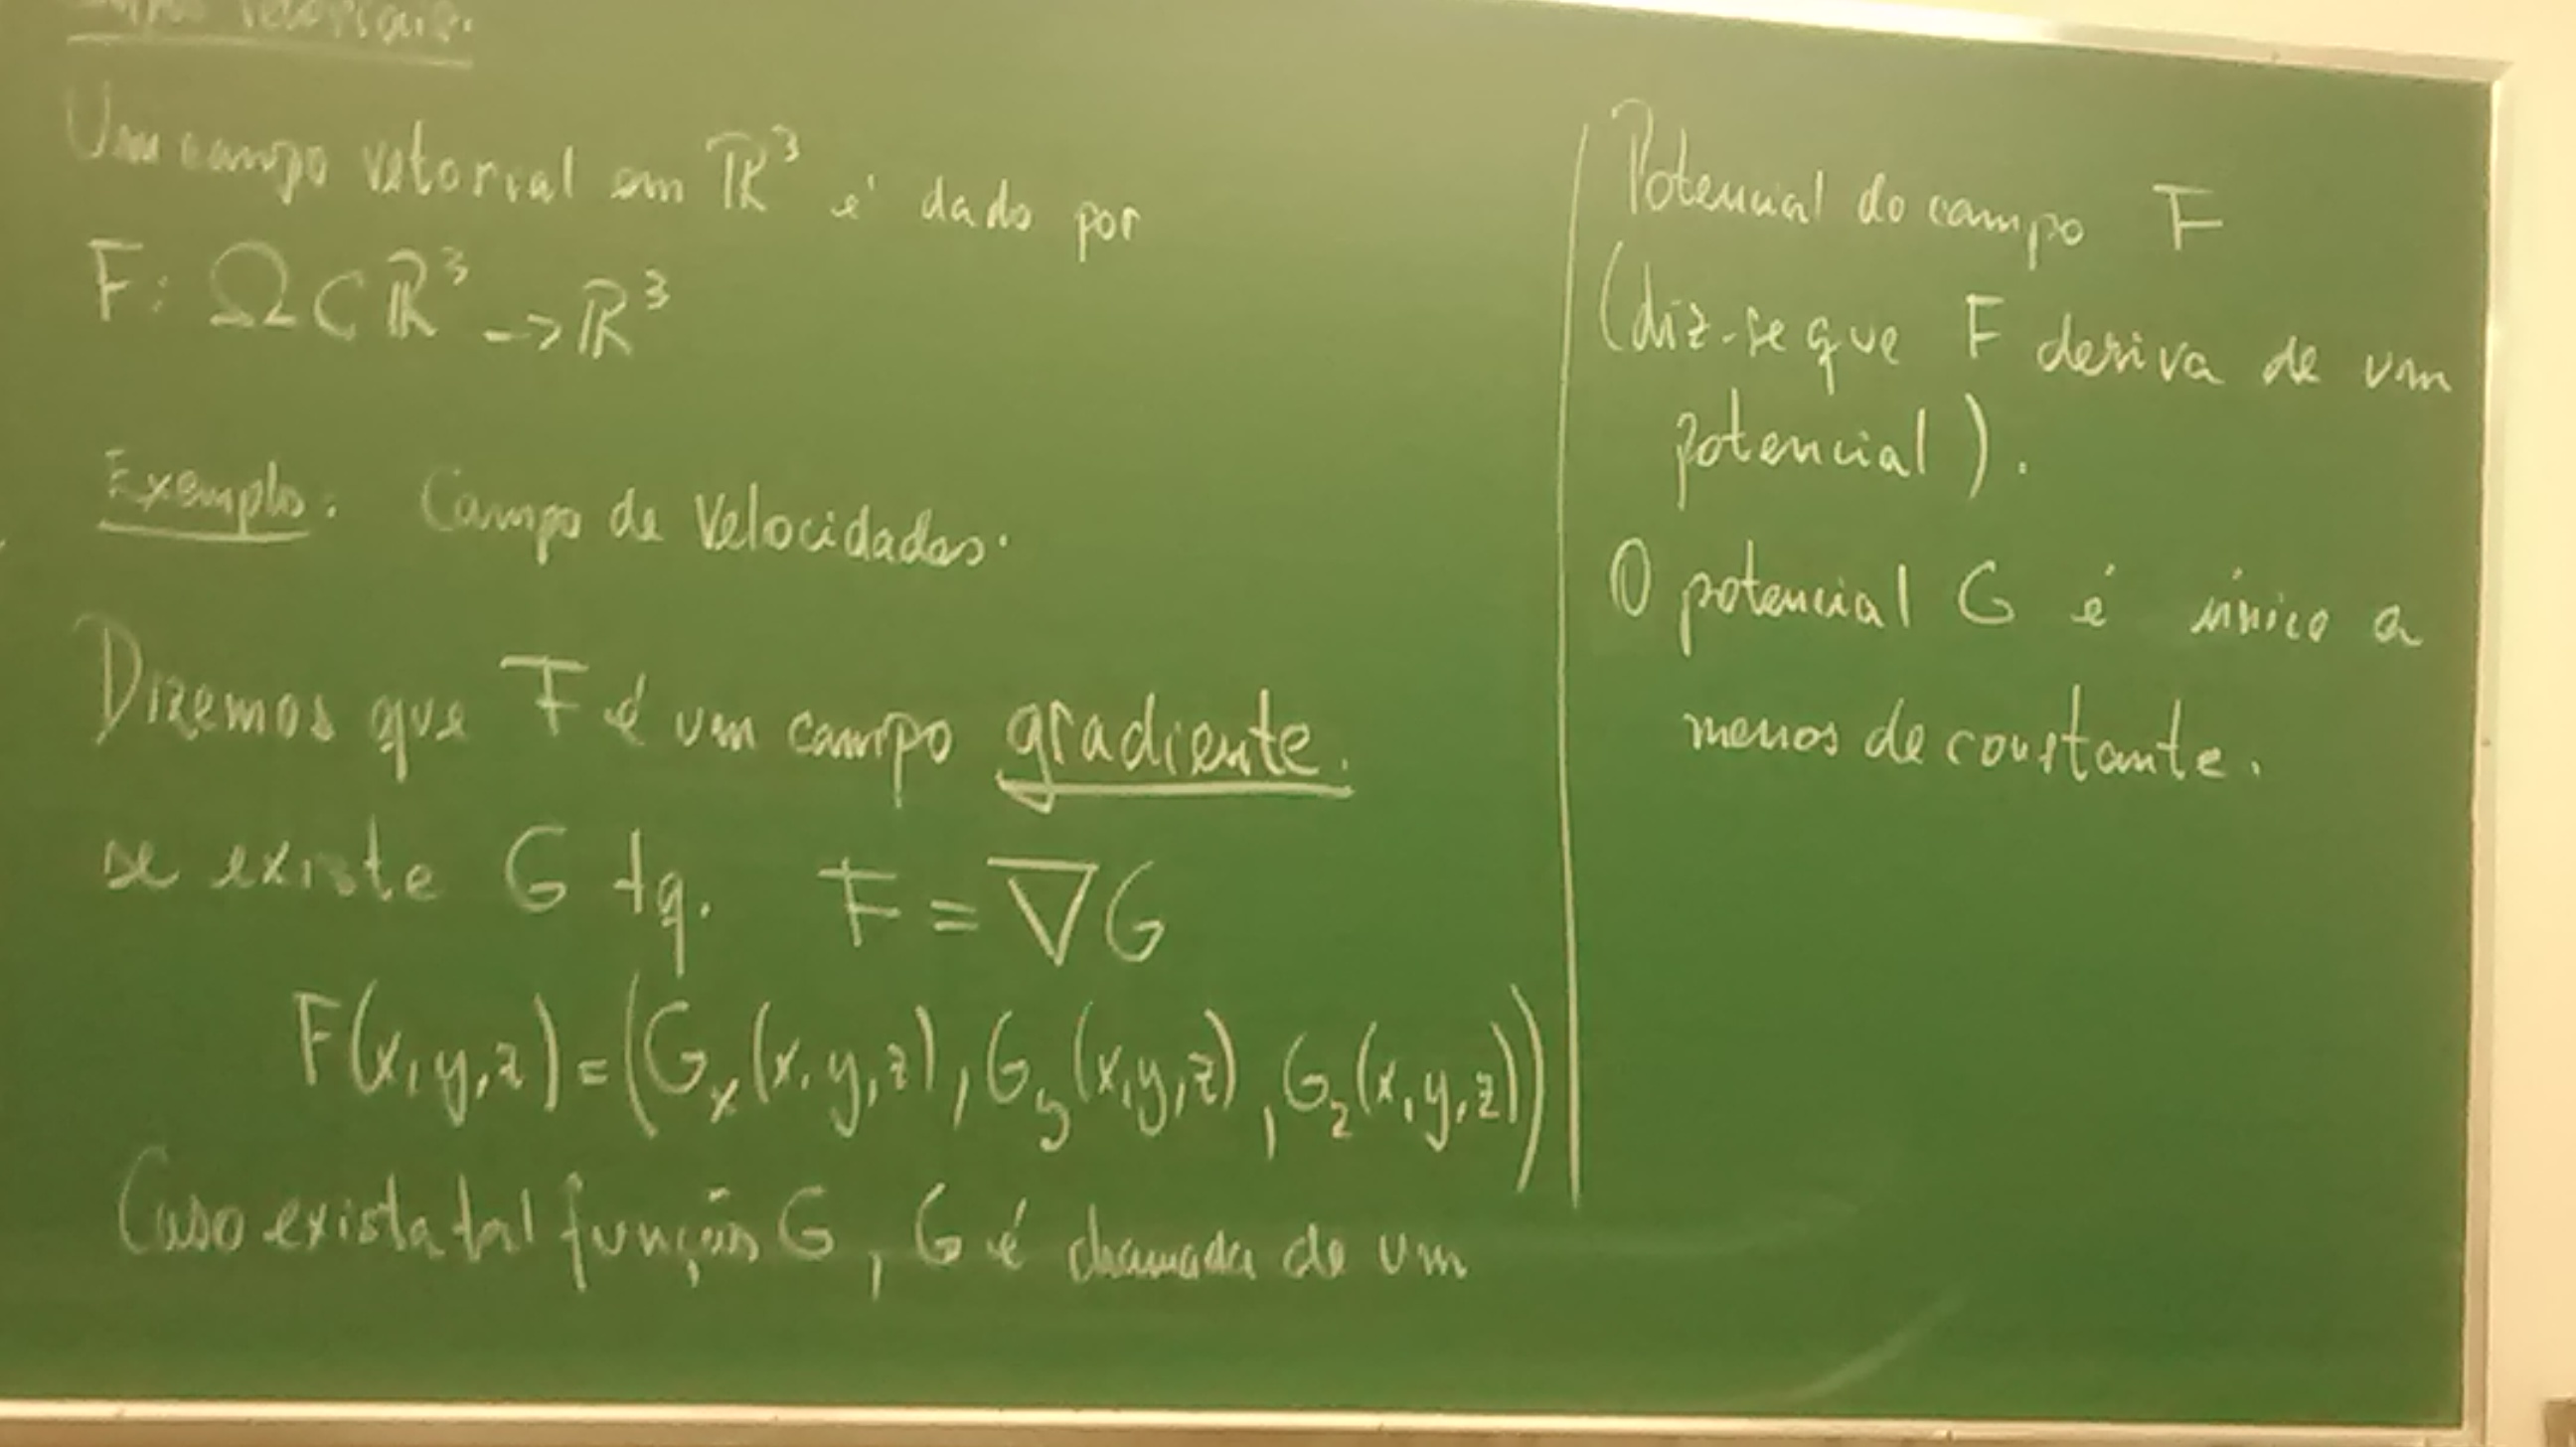 vetoriais.
Um campo vetorial em ℝ³ é dado por
F: Ω ⊂ ℝ³ -> ℝ³
Exemplo: Campo de Velocidades.
Dizemos que F é um campo gradiente.
se existe G tq. F = ∇G
F(x,y,z) = (Gₓ(x,y,z), G_y(x,y,z), G_z(x,y,z))
Caso exista tal função G, G é chamada de um
Potencial do campo F
(diz-se que F deriva de um
potencial).
O potencial G é único a
menos de constante.